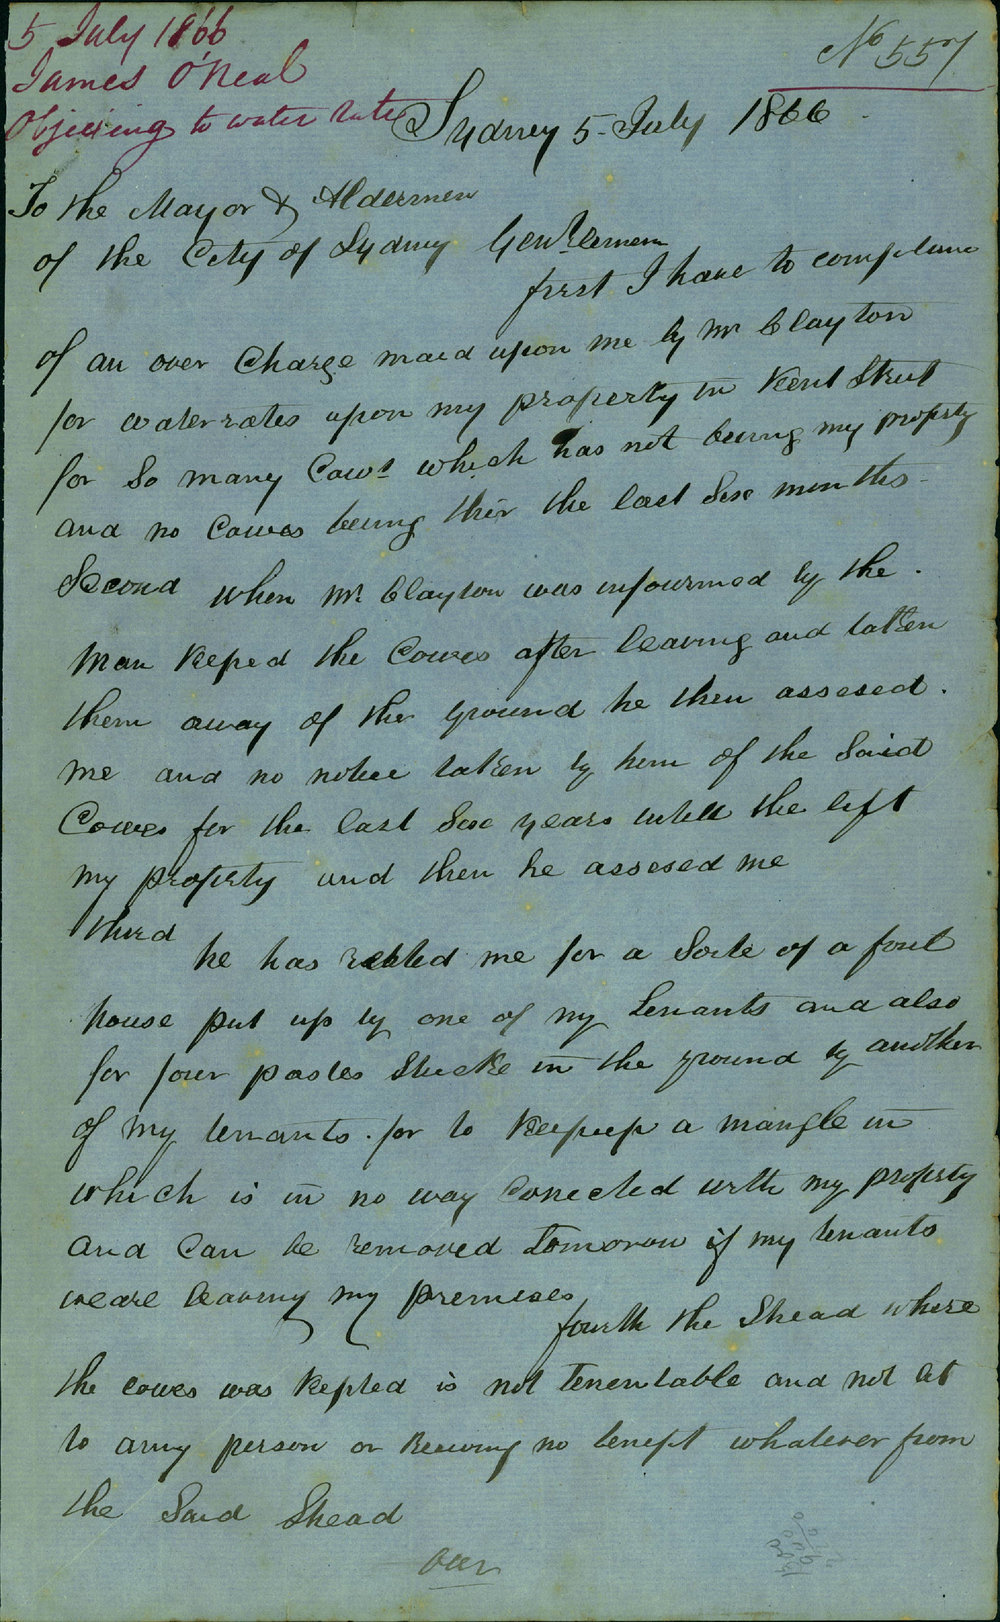 5 July 1866
James O'Neal
Objecting to water rate
No 557
Sydney 5 July 1866
To the Mayor & Aldermen
of the City of Sydney Gentlemen
first I have to complane
of an over Charge maid upon me by Mr Clayton
for water rates upon my property in Kent Street
for So many Cows which has not being my property
and no Cowes being thir the last Sixe months
Second when Mr Clayton was infourmed by the
Man Keped the Cowes after leaving and taken
them away of the Ground he then assesed
me and no notice taken by him of the Said
Cowes for the last Sixe years untill the left
my property and then he assesed me
third
he has rated me for a Sorte of a foul
house put up by one of my tenants and also
for four postes Stucke in the ground by another
of my tenants for to Keep up a mangle in
which is in no way Conected with my property
and Can be removed tomorow if my tenants
weare leaving my premises
fourth the Shead where
the cowes was Kepted is not tenentable and not let
to anny person or Receiving no benefit whatever from
the Said Shead
over